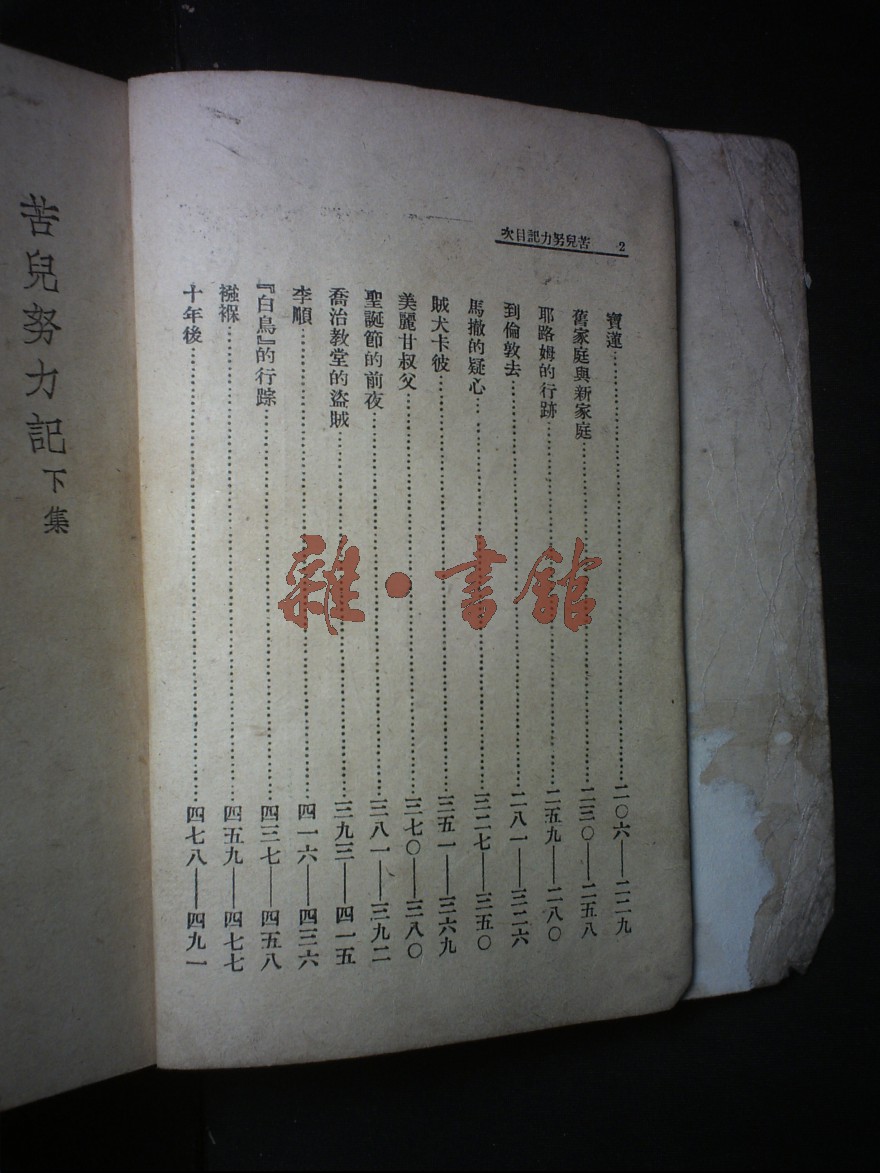 苦兒努力記目次 2
寶蓮……二〇六——二二九
舊家庭與新家庭……二三〇——二五八
耶路姆的行跡……二五九——二八〇
到倫敦去……二八一——三二六
馬撤的疑心……三二七——三五〇
賊犬卡彼……三五一——三六九
美麗甘叔父……三七〇——三八〇
聖誕節的前夜……三八一——三九二
喬治教堂的盜賊……三九三——四一五
李順……四一六——四三六
『白鳥』的行踪……四三七——四五八
襁褓……四五九——四七七
十年後……四七八——四九一
苦兒努力記下集
雜·書館